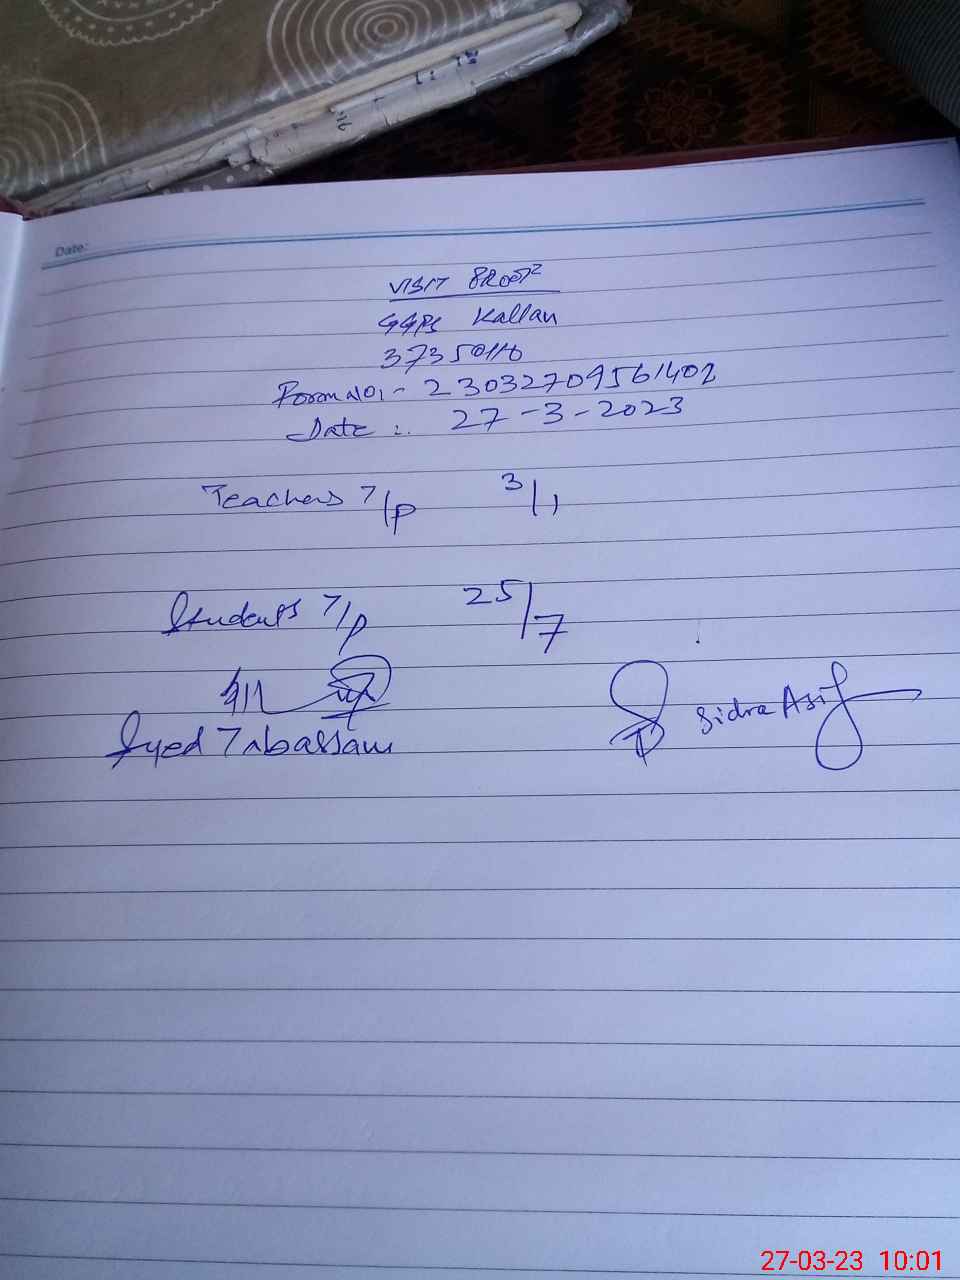 Date:
VISIT PROOF
GGPS Kallan
37350116
Form No:- 23032709561402
Date :. 27-3-2023
Teachers T/P 3/1
Students T/P 25/7
Syed Tabassam
Sidra Asif
27-03-23 10:01